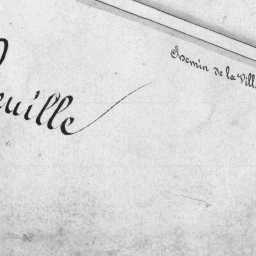 Chemin de la Vill
euille